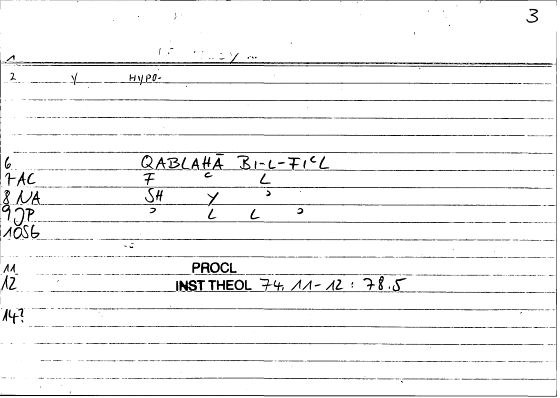 3
1
2 y HYPO-
6 QABLAHĀ BI-L-FIᶜL
7 AC F ᶜ L
8 NA SH Y ᵓ
9 JP ᵓ L L ᵓ
10 SG
11 PROCL
12 INST THEOL 74, 11-12 : 78.5
14?